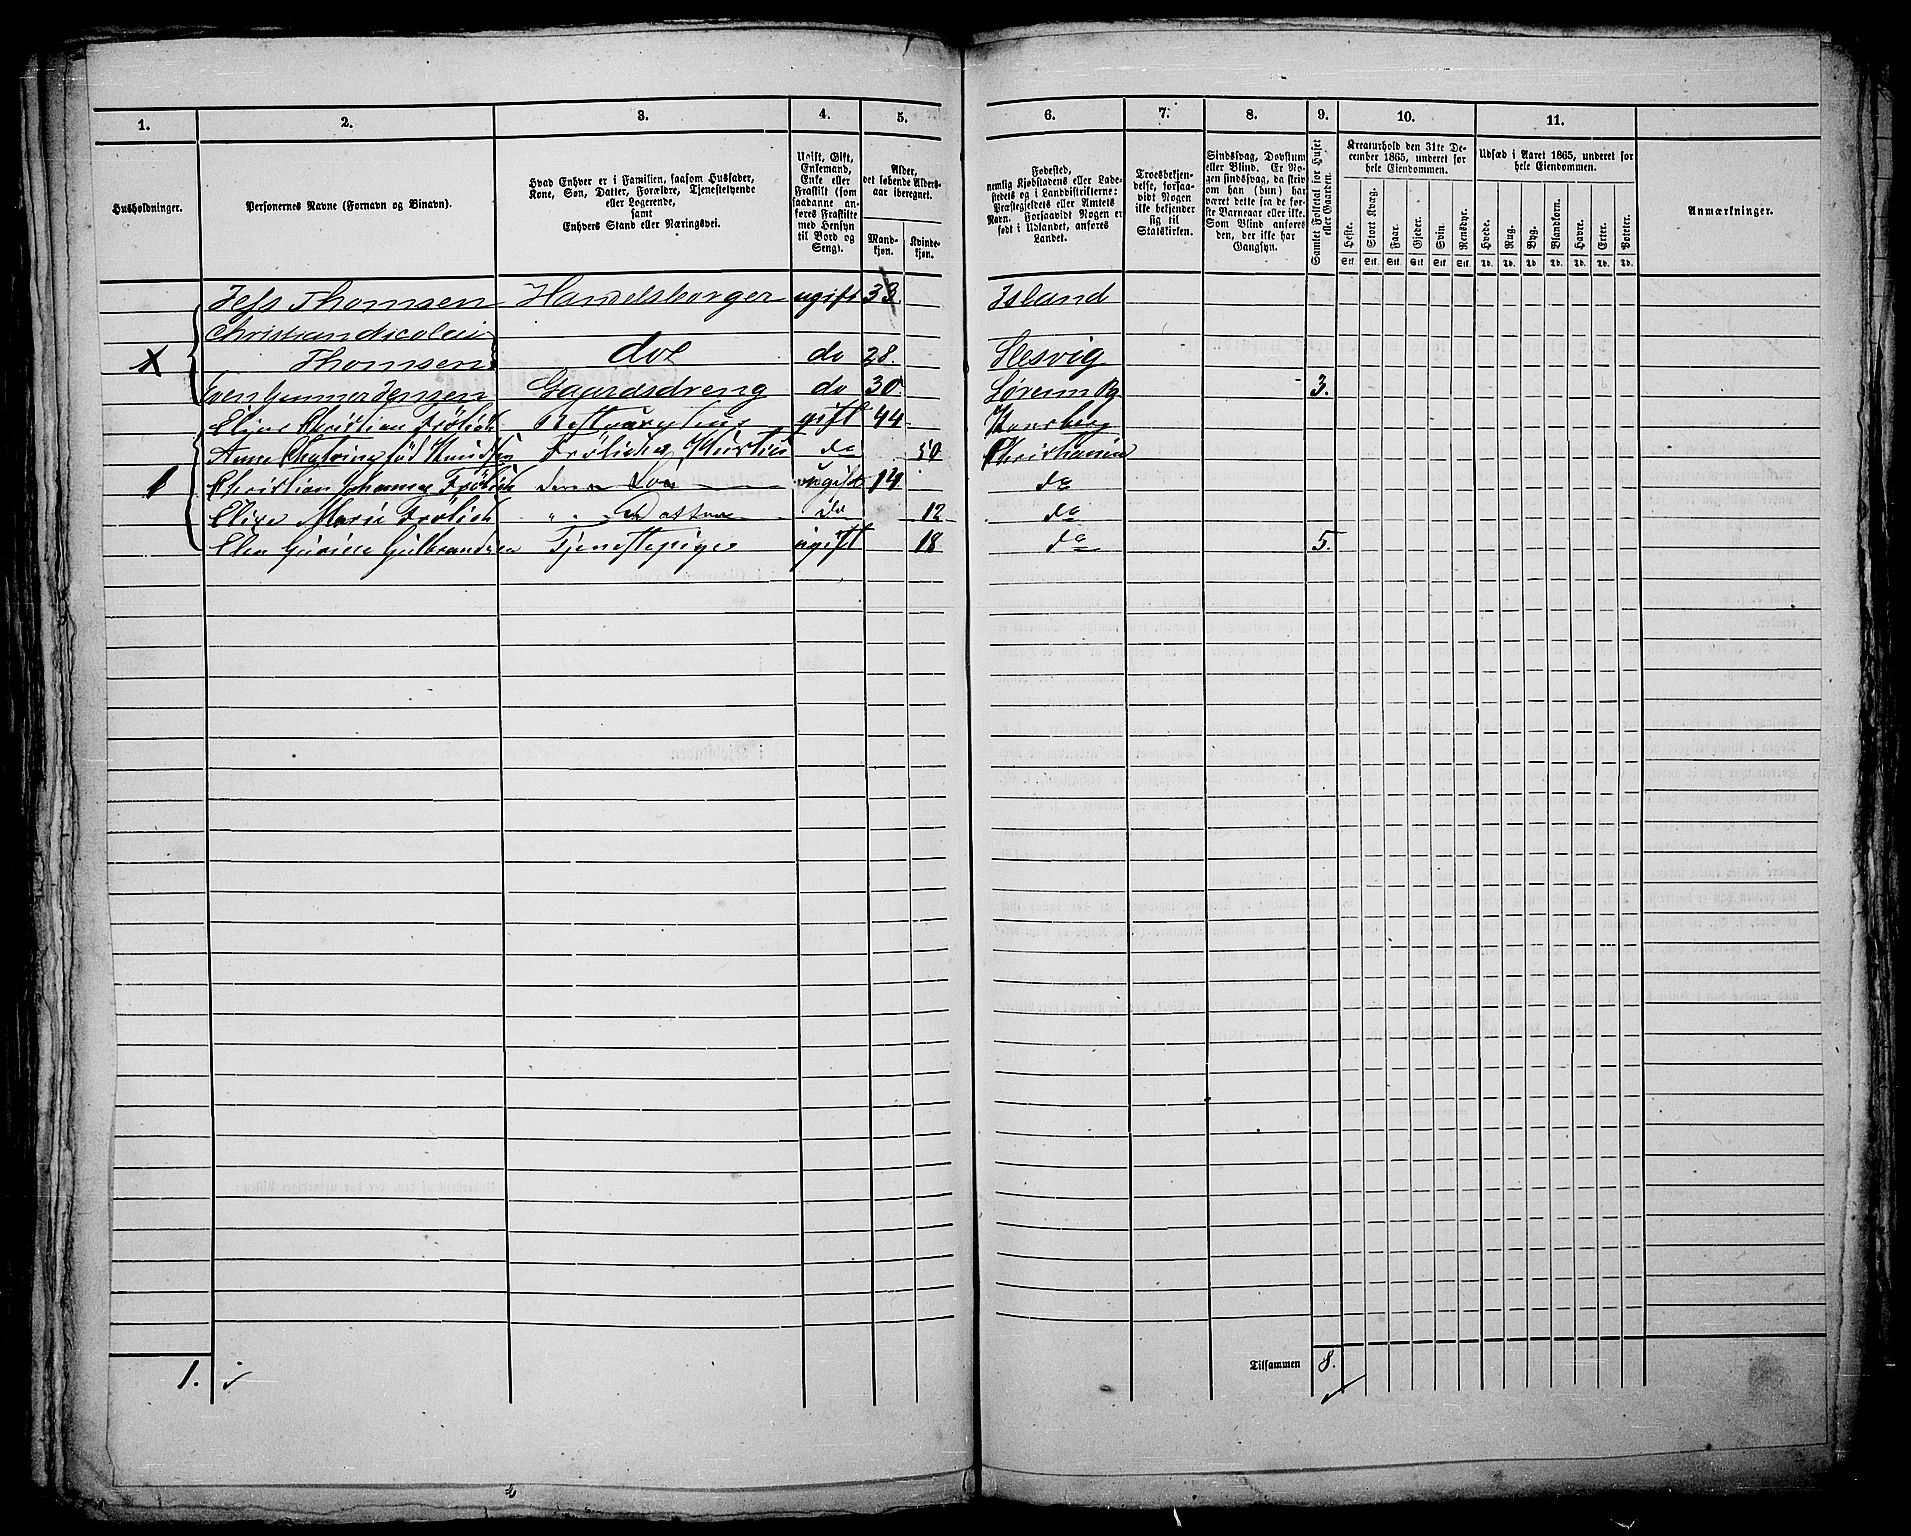 1.
2.
3.
4.
5.
6.
7.
8.
9.
10.
11.
Husholdninger.
Personernes Navne (Fornavn og Binavn).
Hvad Enhver er i Familien, saasom Husfader,
Kone, Søn, Datter, Forældre, Tjenestetyende
eller Logerende,
samt
Enhvers Stand eller Næringsvei.
Ugift, Gift,
Enkemand,
Enke eller
Fraskilt (som
saadanne an-
føres Fraskilte
med Hensyn
til Bord og
Seng).
Alder,
det løbende Alders-
aar iberegnet.
Mand-
kjøn.
Kvinde-
kjøn.
Fødested,
nemlig Kjøbstadens eller Lade-
stedets og i Landdistrikterne:
Præstegjeldets eller Amtets
Navn. Forsaavidt Nogen er
født i Udlandet, anføres
Landet.
Troesbekjen-
delse, forsaa-
vidt Nogen
ikke bekjender
sig til
Statskirken.
Sindssvag, Døvstum
eller Blind. Er No-
gen sindssvag, da skri-
ves om han (hun) har
været dette fra de før-
ste Barneaar eller ikke.
Som Blind anføres
den, der ikke har
Gangsyn.
Samlet Folketal for Huset
eller Gaarden.
Kreaturhold den 31te De-
cember 1865, underet for
hele Eiendommen.
Heste.
Stort Kvæg.
Faar.
Gjeder.
Svin.
Rensdyr.
Stk. Stk. Stk. Stk. Stk. Stk.
Udsæd i Aaret 1865, underet for
hele Eiendommen.
Hvede.
Rug.
Byg.
Blandkorn.
Havre.
Erter.
Poteter.
Td. Td. Td. Td. Td. Td. Td.
Anmærkninger.
Jess Thomsen Handelsborger ugift 33. Island
Christian Nicolai
X Thomsen do do 28. Slesvig
Even Gunner Jensen Gaardsdreng do 30. Sørum Pg 3.
Elias Christian Frölich gift 44 Konsberg
Anne Chatrine föd Knudsen Frölichs Hustru do 50 Christiania
1 Christian Johannes Frölich deres Søn ugift 14 do
Elise Marie Frölich " " Datter do 12 do
Elen Gurine Gulbrandsen Tjenestepige ugift 18 do 5.
Tilsammen 8.
1.